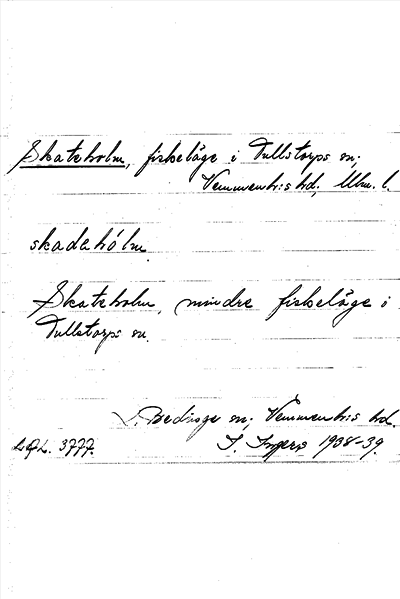 Skateholm, fiskeläge i Tullstorps sn;
Vemmenhrs hd, Mlm. l.
skadahólm.
Skateholm, mindre fiskeläge i
Tullstorps sn.
L. Beddinge sn; Vemmenhrs hd.
L.A.L. 3777. I. Ingers 1938-39.